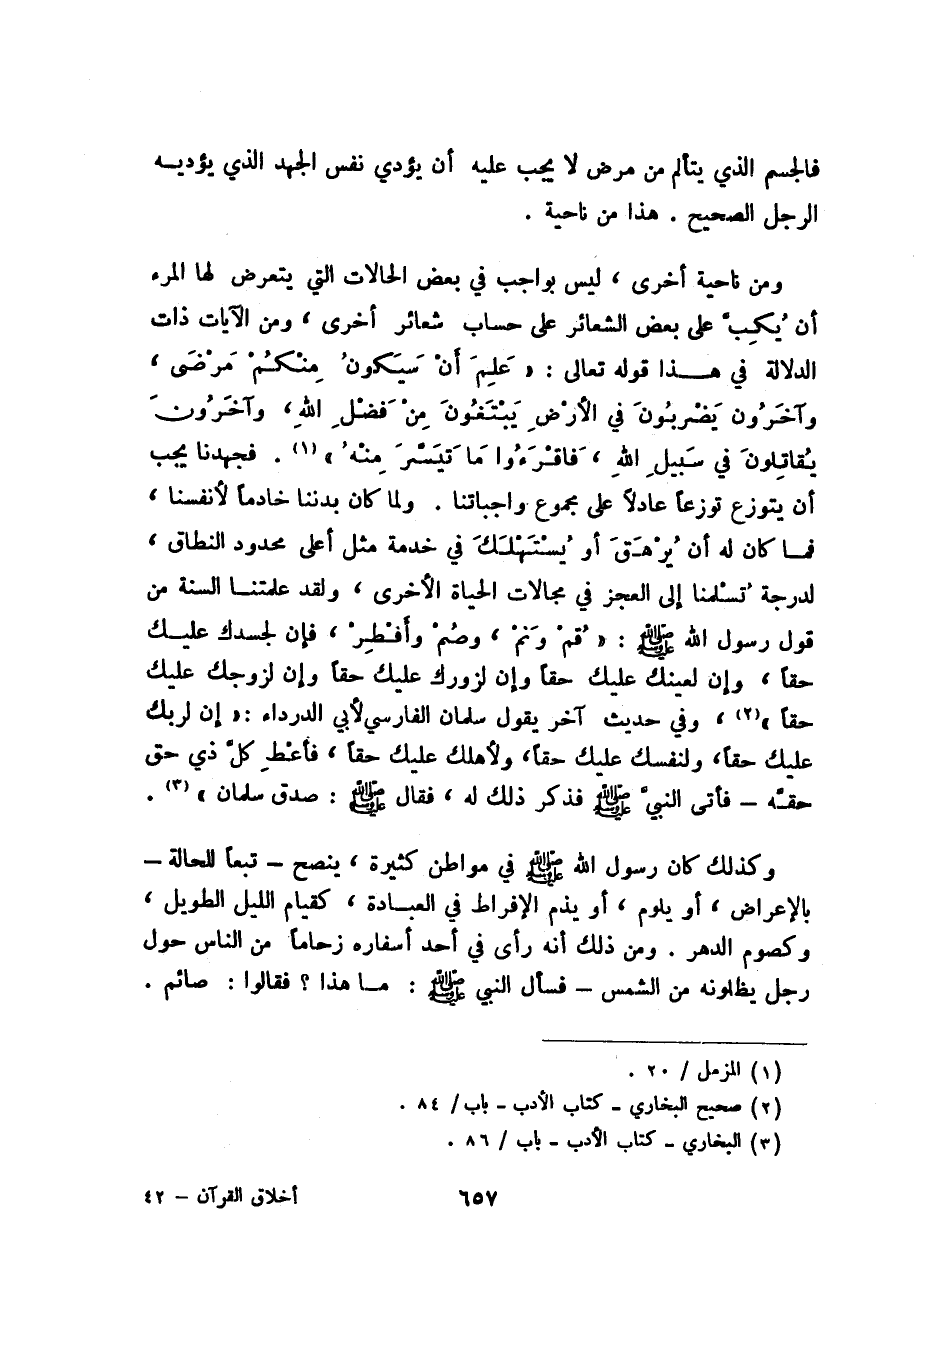 فالجسم الذي يتألم من مرض لا يجب عليه أن يؤدي نفس الجهد الذي يؤديــه
الرجل الصحيح . هذا من ناحية .
ومن ناحية أخرى ، ليس بواجب في بعض الحالات التي يتعرض لها المرء
أن يُكِبَّ على بعض الشعائر على حساب شعائر أخرى ، ومن الآيات ذات
الدلالة في هــــذا قوله تعالى : « عَلِمَ أَنْ سَيَكُونُ مِنْكُمْ مَرْضَى ،
وآخَرُون يَضْرِبُونَ في الأرْضِ يَبْتَغُونَ مِنْ فَضْلِ اللهِ ، وآخَرُونَ
يُقاتِلونَ في سَبِيلِ اللهِ ، فَاقْرَءُوا مَا تَيَسَّرَ مِنْهُ » (١) . فجهدنا يجب
أن يتوزع توزعاً عادلاً على مجموع واجباتنا . ولما كان بدننا خادماً لأنفسنا ،
فمــا كان له أن يُرْهَقَ أو يُسْتَهْلَكَ في خدمة مثل أعلى محدود النطاق ،
لدرجة تُسْلمنا إلى العجز في مجالات الحياة الأخرى ، ولقد علمتنــا السنة من
قول رسول الله ﷺ : « قُمْ وَنَمْ ، وصُمْ وأَفْطِرْ ، فإن لجسدك عليــك
حقاً ، وإن لعينك عليك حقاً وإن لزورك عليك حقاً وإن لزوجك عليك
حقاً »(٢) ، وفي حديث آخر يقول سلمان الفارسي لأبي الدرداء :« إن لربك
عليك حقاً، ولنفسك عليك حقاً، ولأهلك عليك حقاً ، فأعْطِ كلَّ ذي حق
حقَّه – فأتى النبيَّ ﷺ فذكر ذلك له ، فقال ﷺ : صدق سلمان »(٣) .
وكذلك كان رسول الله ﷺ في مواطن كثيرة ، ينصح – تبعاً للحالة –
بالإعراض ، أو يلوم ، أو يذم الإفراط في العبــادة ، كقيام الليل الطويل ،
وكصوم الدهر . ومن ذلك أنه رأى في أحد أسفاره زحاماً من الناس حول
رجل يظلونه من الشمس – فسأل النبي ﷺ : مــا هذا ؟ فقالوا : صائم .
(١) المزمل / ٢٠ .
(٢) صحيح البخاري – كتاب الأدب – باب/ ٨٤ .
(٣) البخاري – كتاب الأدب – باب / ٨٦ .
٦٥٧
أخلاق القرآن – ٤٢